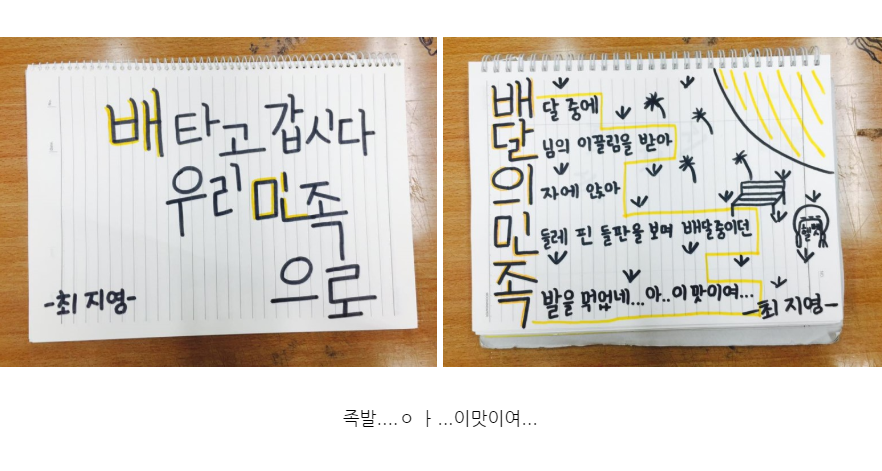 배 타고 갑시다
우리 민족
으로
-최 지영-
배 달 중에
달 님의 이끌림을 받아
의 자에 앉아
민 들레 핀 들판을 보며 배달중이던
족 발을 먹었네...아..이 맛이여...
헬멧
-최 지영-
족발....ㅇ ㅏ ...이맛이여...